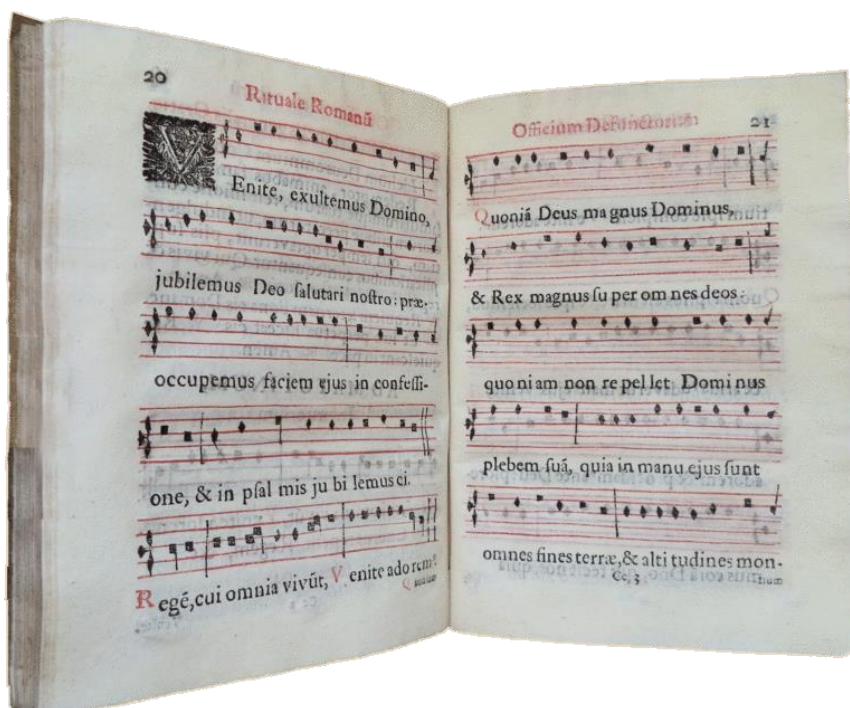 20
Rituale Romanū
VEnite, exultemus Domino,
jubilemus Deo ſalutari noſtro: præ-
occupemus faciem ejus in confeſſi-
one, & in pſal mis ju bi lemus ei.
Regē, cui omnia vivūt, Venite ado rem⁹
Officium Defunctorum 21
Quoniā Deus ma gnus Dominus,
& Rex magnus ſu per om nes deos:
quo ni am non re pel let Domi nus
plebem ſuā, quia in manu ejus ſunt
omnes fines terræ, & alti tudines mon-
Cc, 3 tium